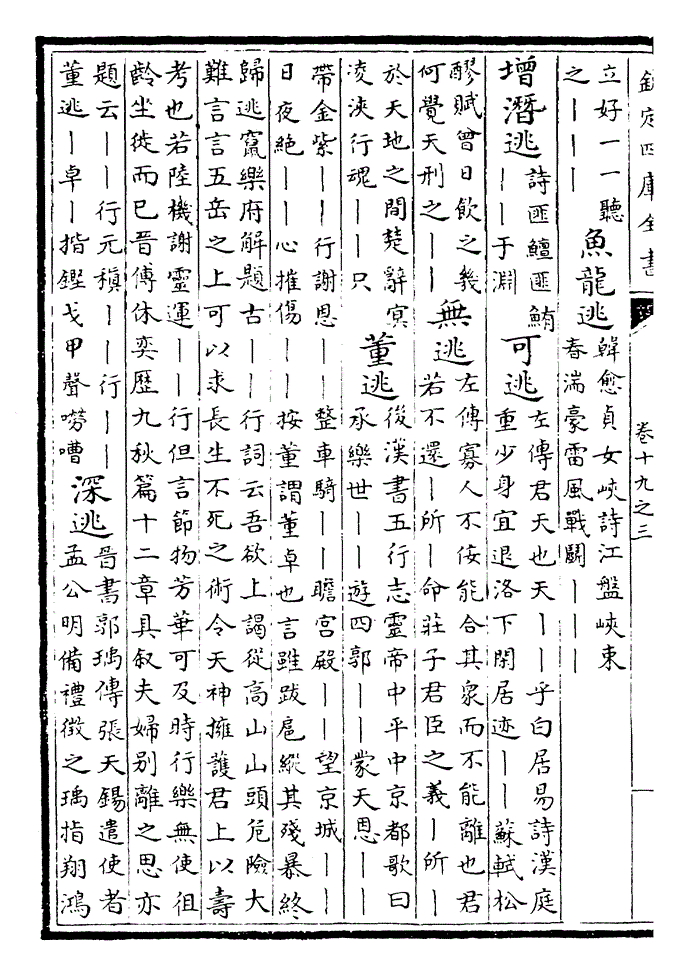 欽定四庫全書 卷十九之三
立好一一聽
之｜｜｜
魚龍逃
韓愈貞女峽詩江盤峽東
春湍豪雷風戰鬭｜｜｜
增潛逃
詩匪鱣匪鮪
｜｜于淵
可逃
左傳君天也天｜｜乎白居易詩漢庭
重少身宜退洛下閒居迹｜｜蘇軾松
醪賦曾日飲之幾
何覺天刑之｜｜
無逃
左傳寡人不佞能合其衆而不能離也君
若不還｜所｜命莊子君臣之義｜所｜
於天地之間楚辭㝠
凌浹行魂｜｜只
董逃
後漢書五行志靈帝中平中京都歌曰
承樂世｜｜遊四郭｜｜蒙天恩｜｜
帶金紫｜｜行謝恩｜｜整車騎｜｜瞻宫殿｜｜望京城｜｜
日夜絶｜｜心摧傷｜｜按董謂董卓也言雖跋扈縱其殘暴終
歸逃竄樂府解題古｜｜行詞云吾欲上謁從高山山頭危險大
難言言五岳之上可以求長生不死之術令天神擁護君上以壽
考也若陸機謝靈運｜｜行但言節物芳華可及時行樂無使徂
齡坐徙而已晉傅休奕歷九秋篇十二章具叙夫婦别離之思亦
題云｜｜行元稹｜｜｜行｜｜
董逃｜卓｜揩鏗戈甲聲嘮嘈
深逃
晉書郭瑀傳張天錫遣使者
孟公明備禮徵之瑀指翔鴻